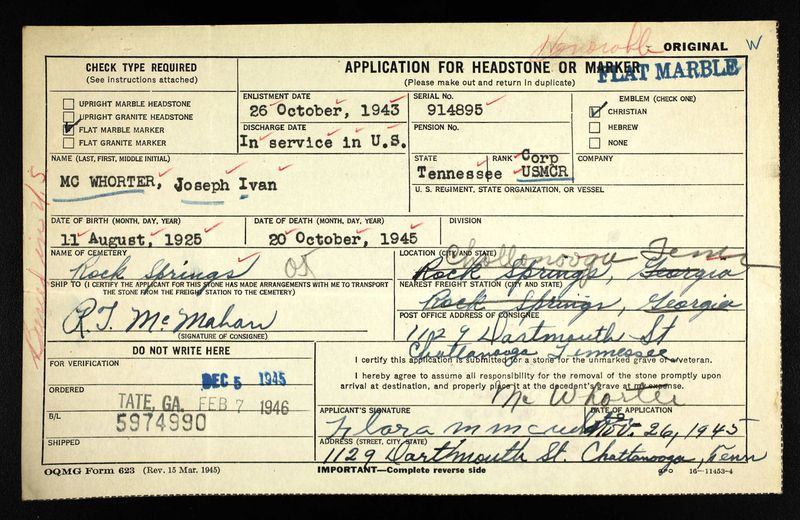 Honorable ORIGINAL W
CHECK TYPE REQUIRED
(See instructions attached)
UPRIGHT MARBLE HEADSTONE
UPRIGHT GRANITE HEADSTONE
FLAT MARBLE MARKER
FLAT GRANITE MARKER
APPLICATION FOR HEADSTONE OR MARKER
FLAT MARBLE
(Please make out and return in duplicate)
ENLISTMENT DATE
26 October, 1943
SERIAL No.
914895
EMBLEM (CHECK ONE)
CHRISTIAN
HEBREW
NONE
DISCHARGE DATE
In service in U.S.
PENSION No.
STATE
Tennessee
RANK
Corp
USMCR
COMPANY
NAME (LAST, FIRST, MIDDLE INITIAL)
MC WHORTER, Joseph Ivan
U. S. REGIMENT, STATE ORGANIZATION, OR VESSEL
DATE OF BIRTH (MONTH, DAY, YEAR)
11 August, 1925
DATE OF DEATH (MONTH, DAY, YEAR)
20 October, 1945
DIVISION
NAME OF CEMETERY
Rock Springs
LOCATION (CITY AND STATE)
Chattanooga Tenn
Rock Springs, Georgia
SHIP TO (I CERTIFY THE APPLICANT FOR THIS STONE HAS MADE ARRANGEMENTS WITH ME TO TRANSPORT
THE STONE FROM THE FREIGHT STATION TO THE CEMETERY)
R.T. McMahan
(SIGNATURE OF CONSIGNEE)
NEAREST FREIGHT STATION (CITY AND STATE)
Rock Springs, Georgia
POST OFFICE ADDRESS OF CONSIGNEE
1129 Dartmouth St
Chattanooga Tennessee
DO NOT WRITE HERE
FOR VERIFICATION
DEC 5 1945
ORDERED
TATE, GA. FEB 7 1946
B/L
5974990
SHIPPED
I certify this application is submitted for a stone for the unmarked grave of a veteran.
I hereby agree to assume all responsibility for the removal of the stone promptly upon
arrival at destination, and properly place it at the decedent's grave at my expense.
Mc Whorter
APPLICANT'S SIGNATURE
Flora
DATE OF APPLICATION
Nov. 26, 1945
ADDRESS (STREET, CITY, STATE)
1129 Dartmouth St. Chattanooga, Tenn
OQMG Form 623 (Rev. 15 Mar. 1945)
IMPORTANT—Complete reverse side
GPO 16—11453-4